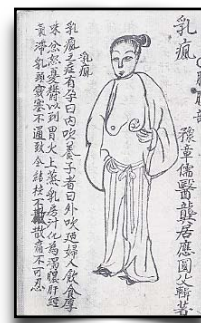 乳瘋
豫章儒醫龔居應圓父聯著
乳瘋
乳瘋之症子曰內吹養子者曰外吹婦人飲食厚
味忿怒憂鬱以到胃火上蒸乳房汁化為濁膿肝經
氣滯乳頭竅塞不通致令結核不散痛不可忍